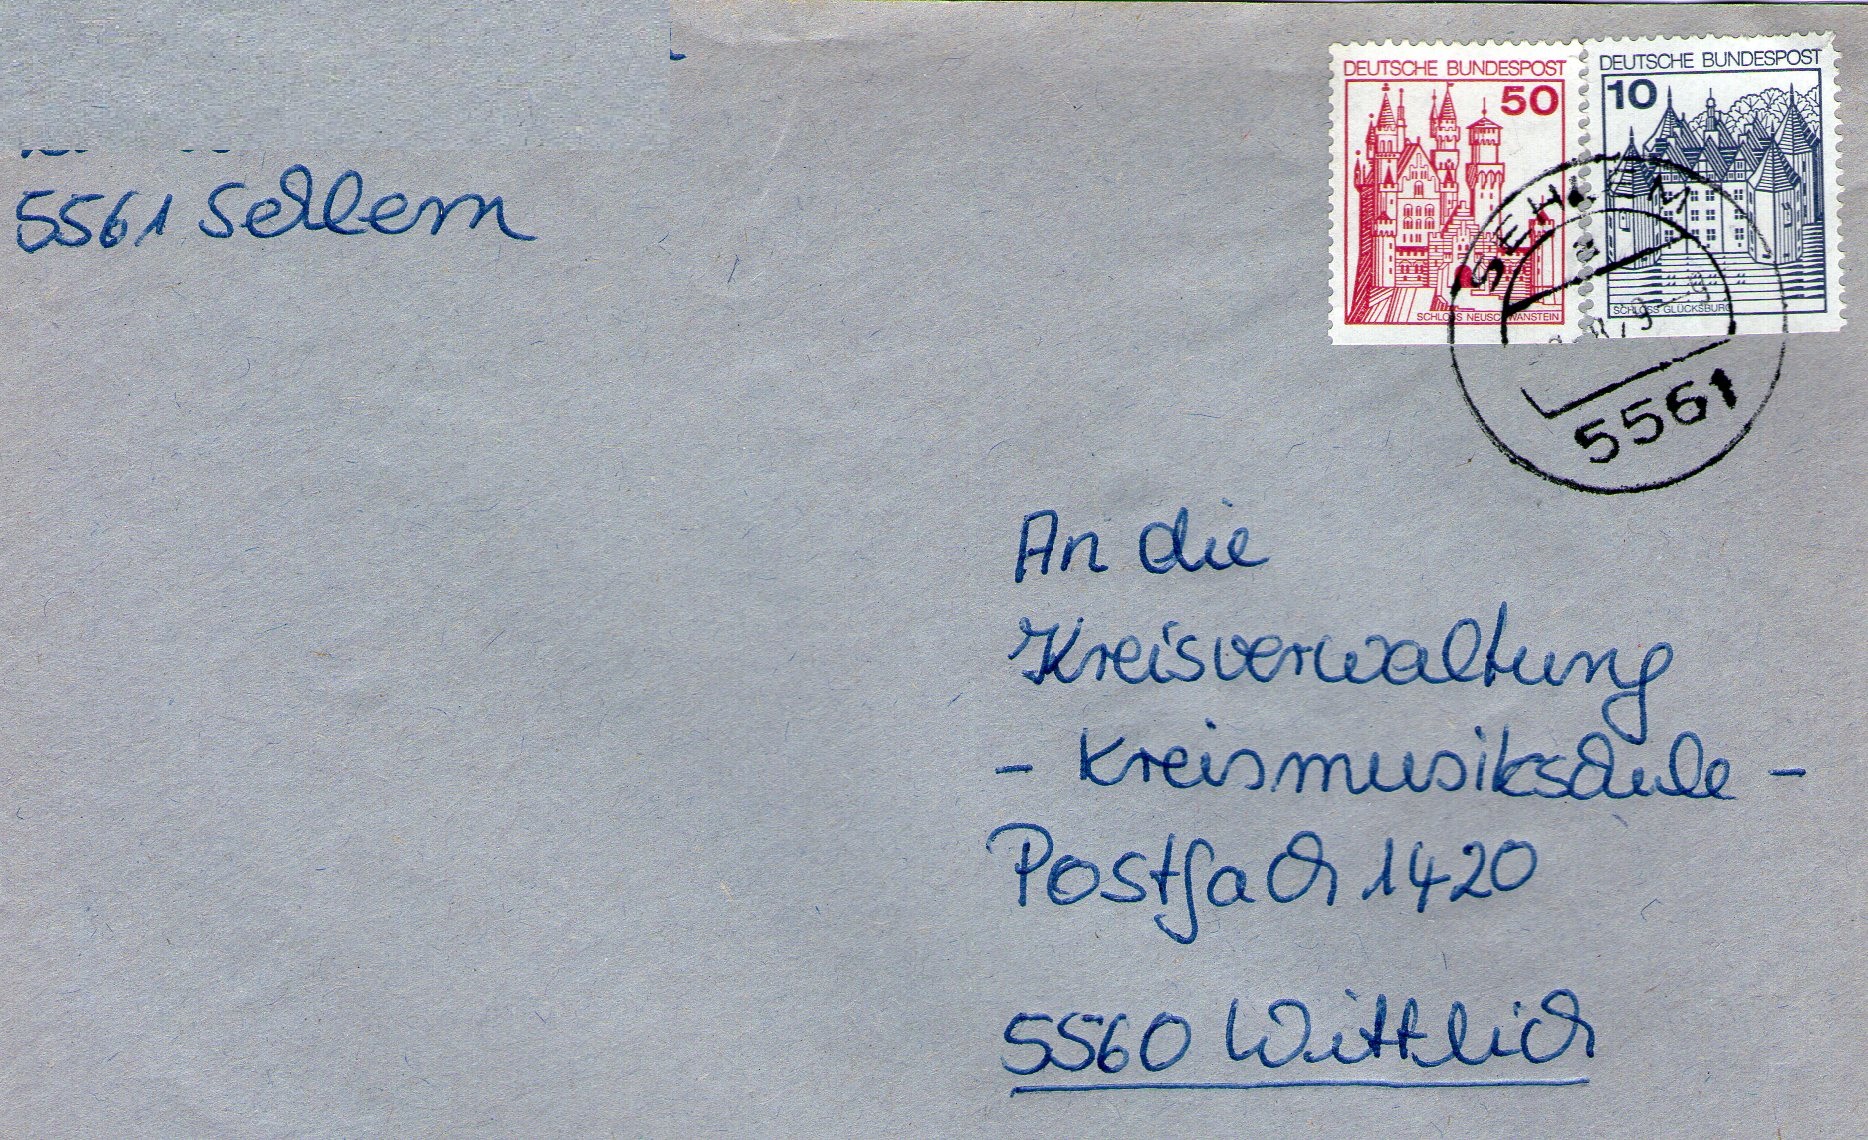 5561 Sehlem
DEUTSCHE BUNDESPOST
50
SCHLOSS NEUSCHWANSTEIN
DEUTSCHE BUNDESPOST
10
SCHLOSS GLÜCKSBURG
SEHLEM
5561
An die
Kreisverwaltung
- Kreismusikschule -
Postfach 1420
5560 Wittlich